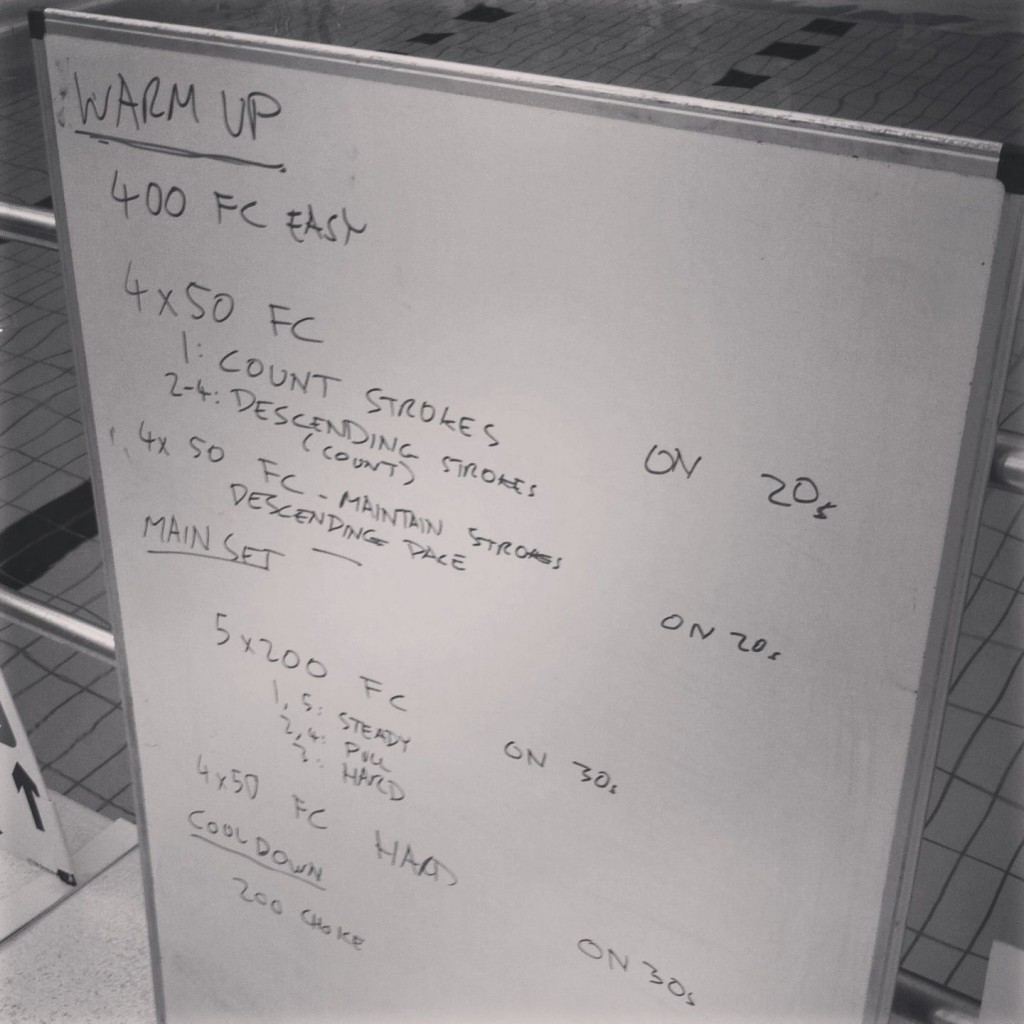 WARM UP
400 FC EASY
4x50 FC
1: COUNT STROKES
2-4: DESCENDING STROKES
(COUNT)
ON 20s
4x 50 FC - MAINTAIN STROKES
DESCENDING PACE
ON 20s
MAIN SET
5x200 FC
1, 5: STEADY
2, 4: PULL
3: HARD
ON 30s
4x50 FC HARD
ON 30s
COOL DOWN
200 CHOICE